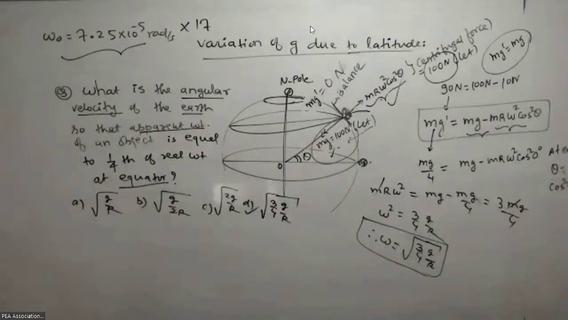 ω₀ = 7.25×10⁻⁵ rad/s × 17
Variation of g due to latitude:
Q) What is the angular
velocity of the earth
so that apparent wt.
of an object is equal
to 1/4 th of real wt
at equator?
a) √(g/R) b) √(g/2R) d) √(3/4 g/R)
N-Pole
mg' = 0 N
balance
mRω²cos²θ
mg=100N (Let)
θ
O
(centrifugal force)
=100N (Let)
mg'=mg
90N = 100N - 10N
mg' = mg - mRω²cos²θ
mg/4 = mg - mRω²cos²0°
mRω² = mg - mg/4 = 3mg/4
ω² = 3/4 g/R
∴ω = √(3/4 g/R)
At e
θ=
cos²
PEA Association...